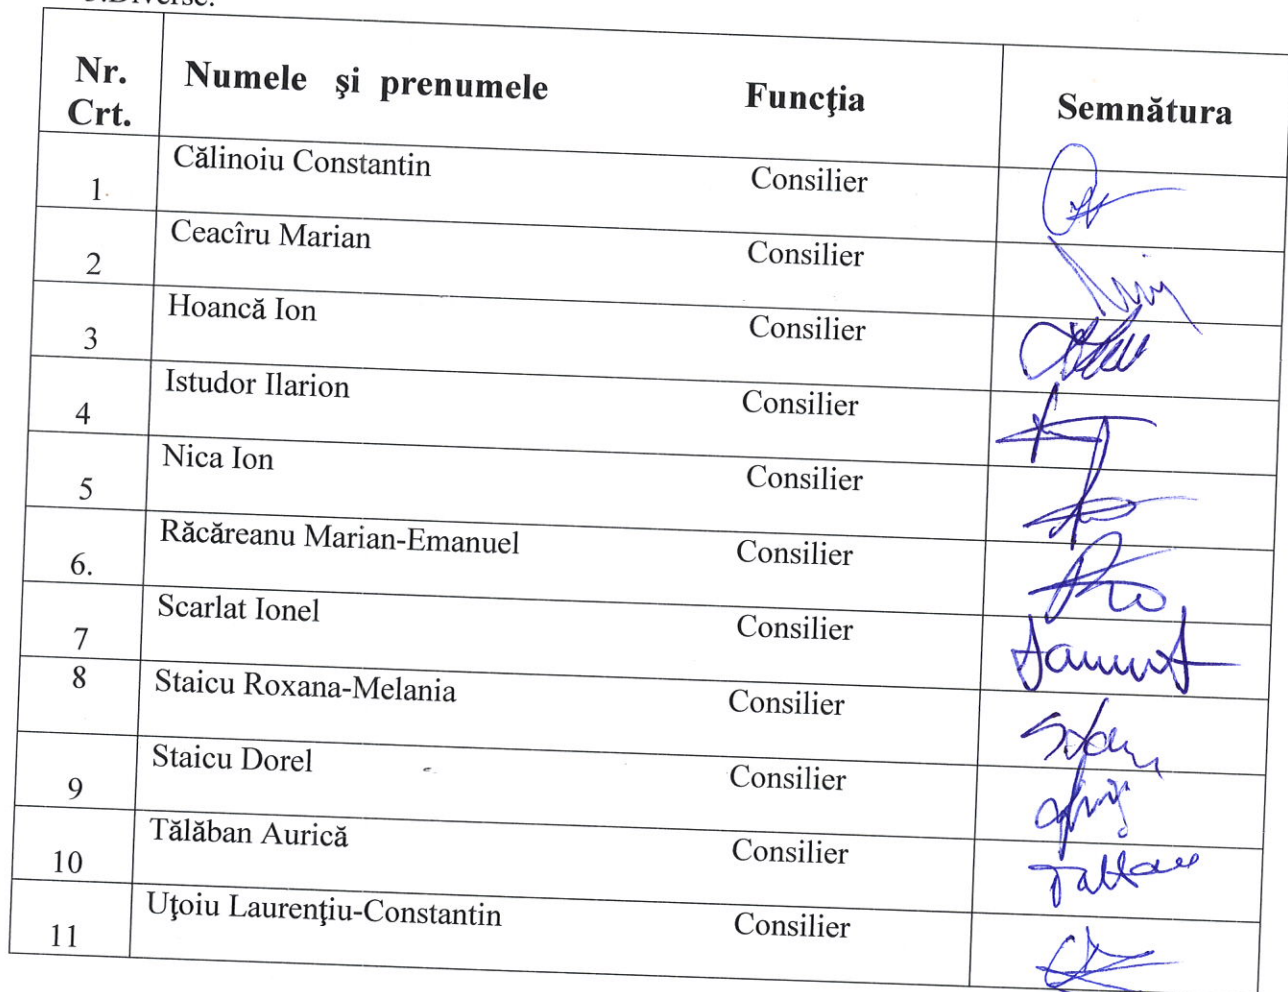 Nr. Crt. Numele şi prenumele Funcţia Semnătura
1 Călinoiu Constantin Consilier
2 Ceacîru Marian Consilier
3 Hoancă Ion Consilier
4 Istudor Ilarion Consilier
5 Nica Ion Consilier
6. Răcăreanu Marian-Emanuel Consilier
7 Scarlat Ionel Consilier
8 Staicu Roxana-Melania Consilier
9 Staicu Dorel Consilier
10 Tălăban Aurică Consilier
11 Uţoiu Laurenţiu-Constantin Consilier